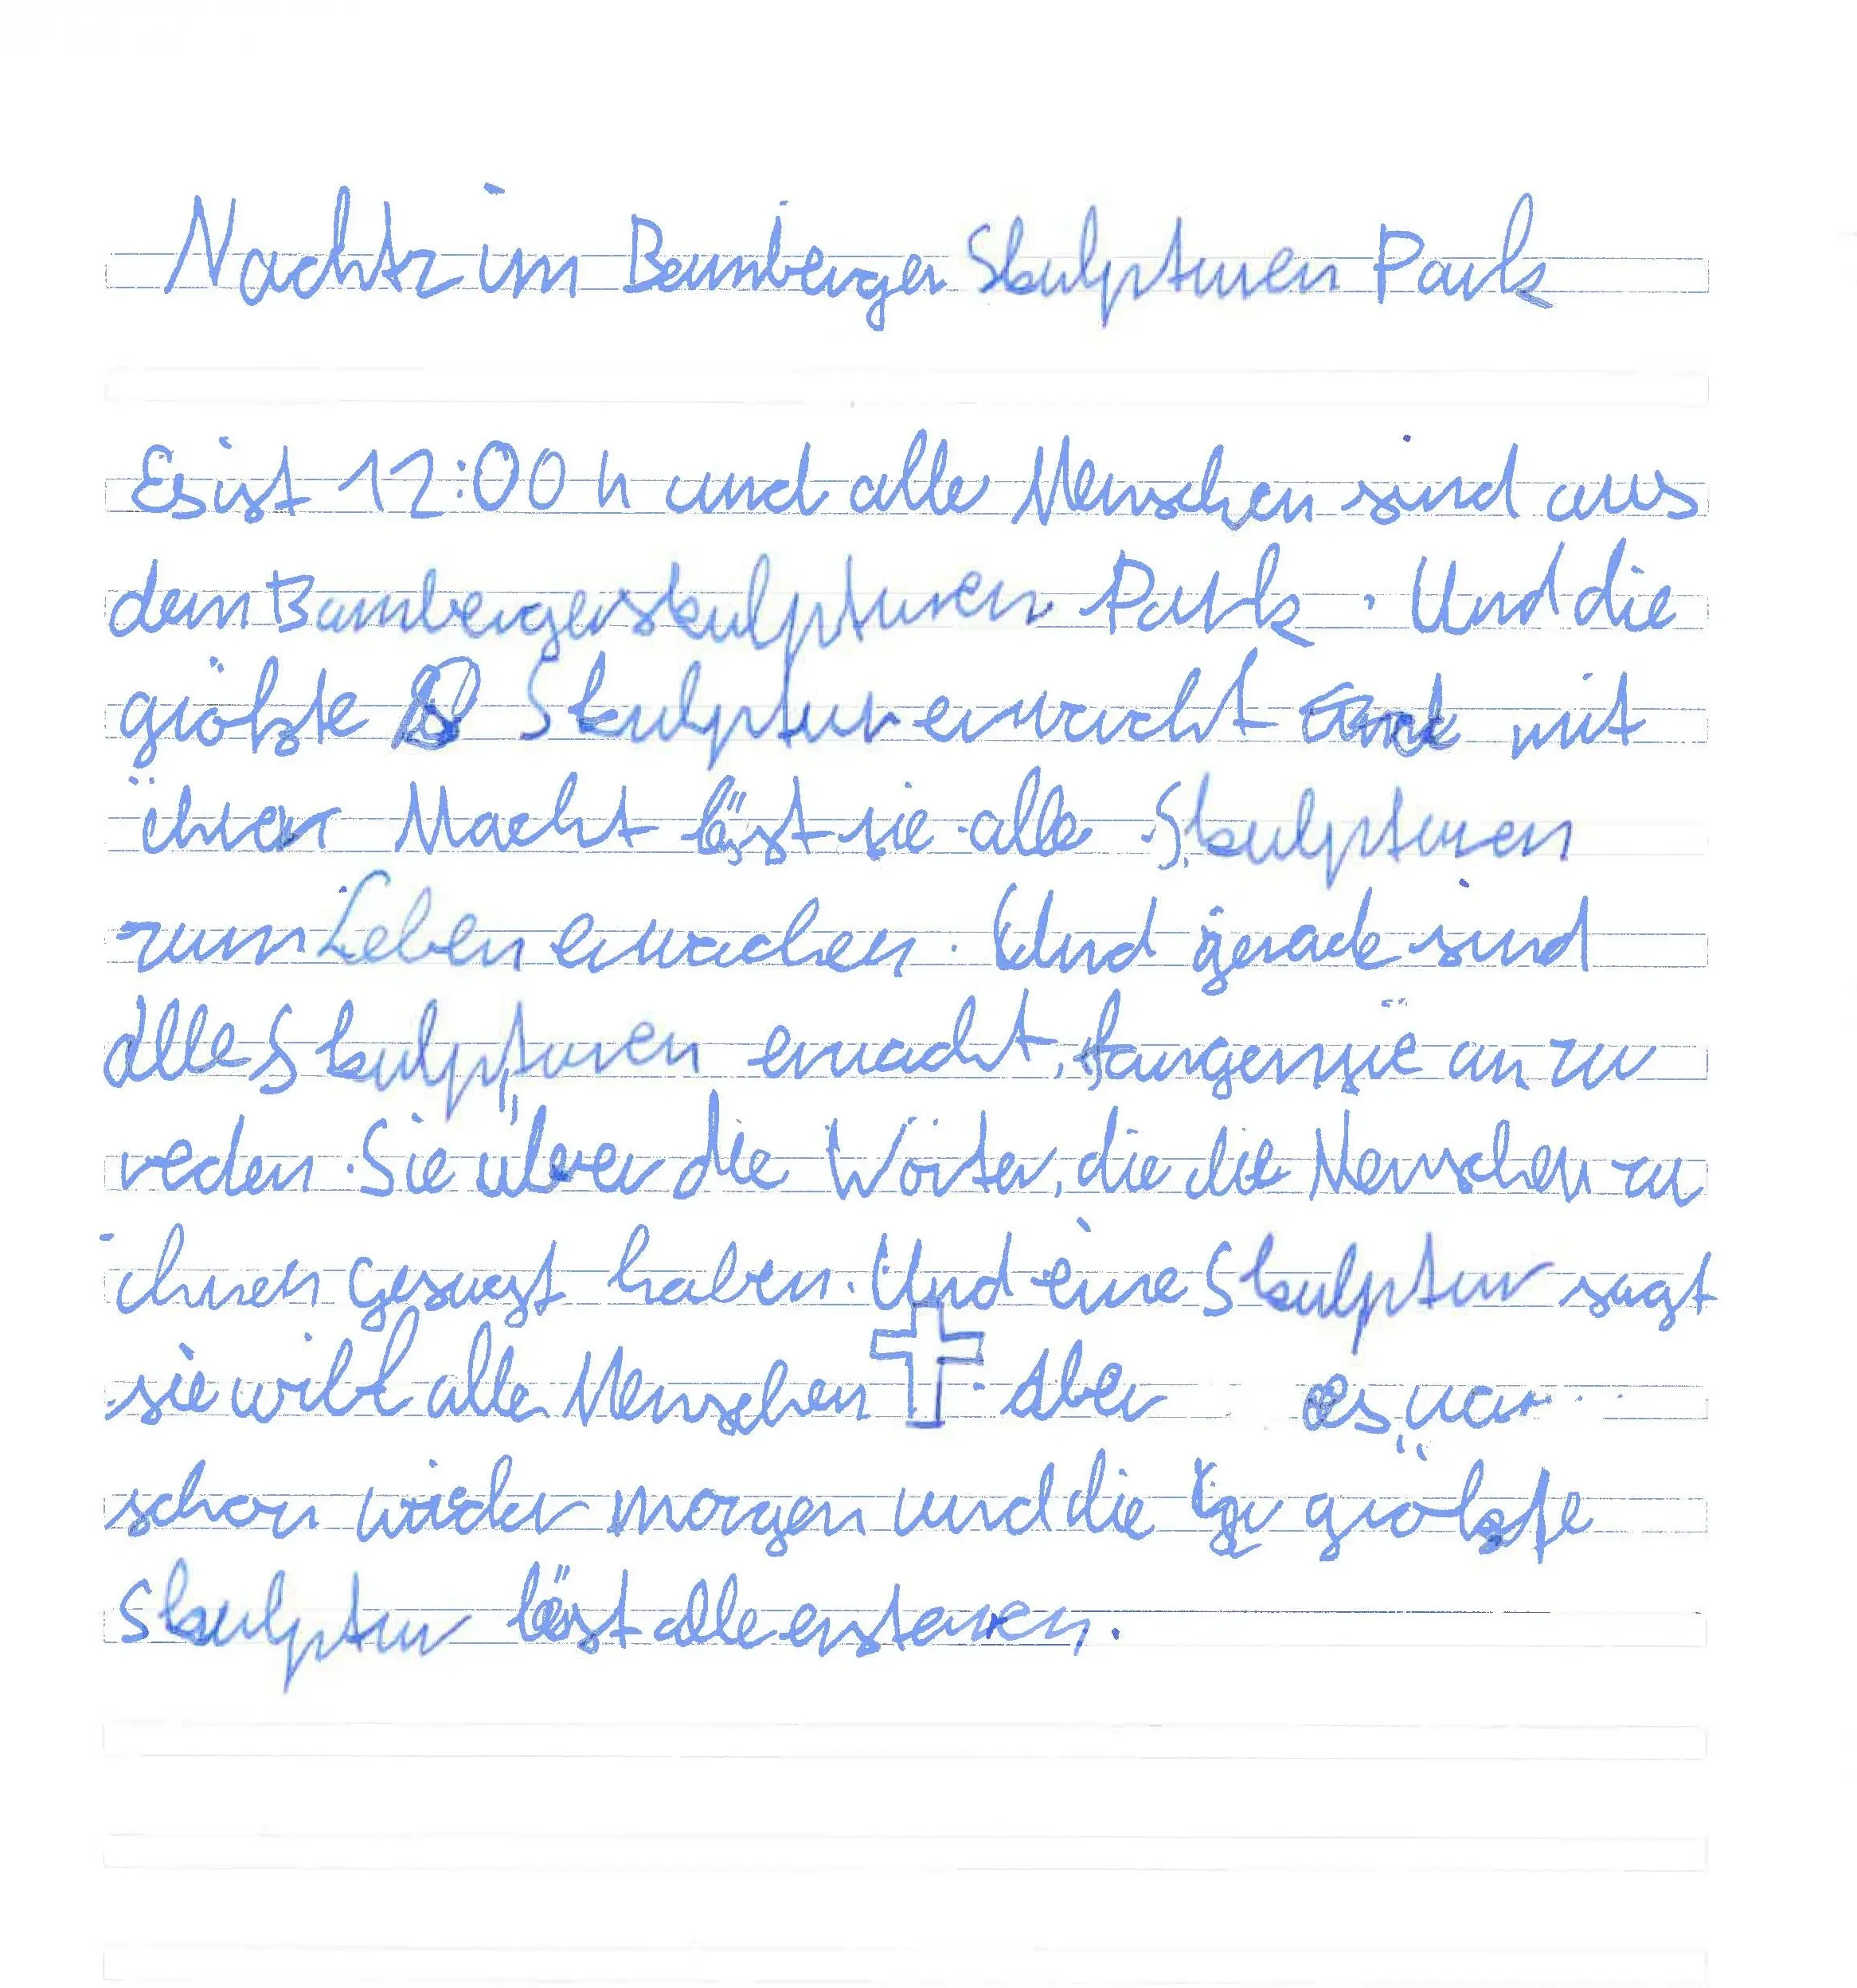 Nachtz im Bamberger Skulpturen Park
Es ist 12:00 h und alle Menschen sind aus
dem Bamberger skulpturen Park. Und die
größte Skulptur erwacht mit
ihrer Macht läst sie alle Skulpturen
zum Leben erwachen. Und gerade sind
alle Skulpturen erwacht, fangen sie an zu
reden. Sie über die Wörter, die die Menschen zu
ihnen gesagt haben. Und eine Skulptur sagt
sie will alle Menschen . Aber es war
schon wieder morgen und die größste
Skulptur läst alle erstaren.